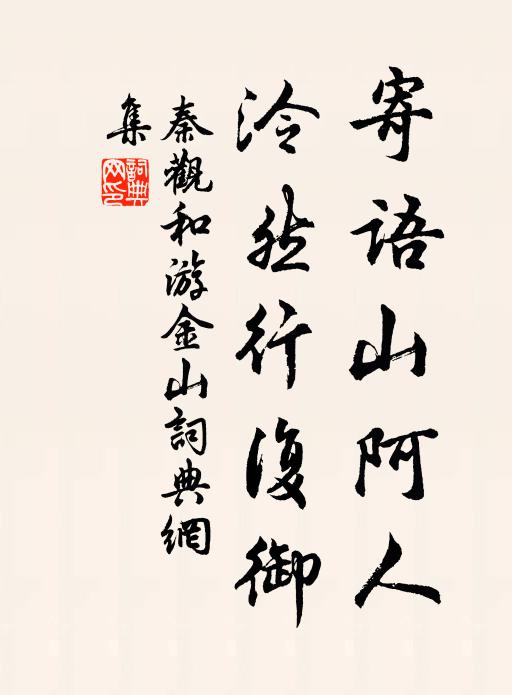 寄語山阿人
泠然行復御
秦觀和游金山詞典網
集
詞典
網印